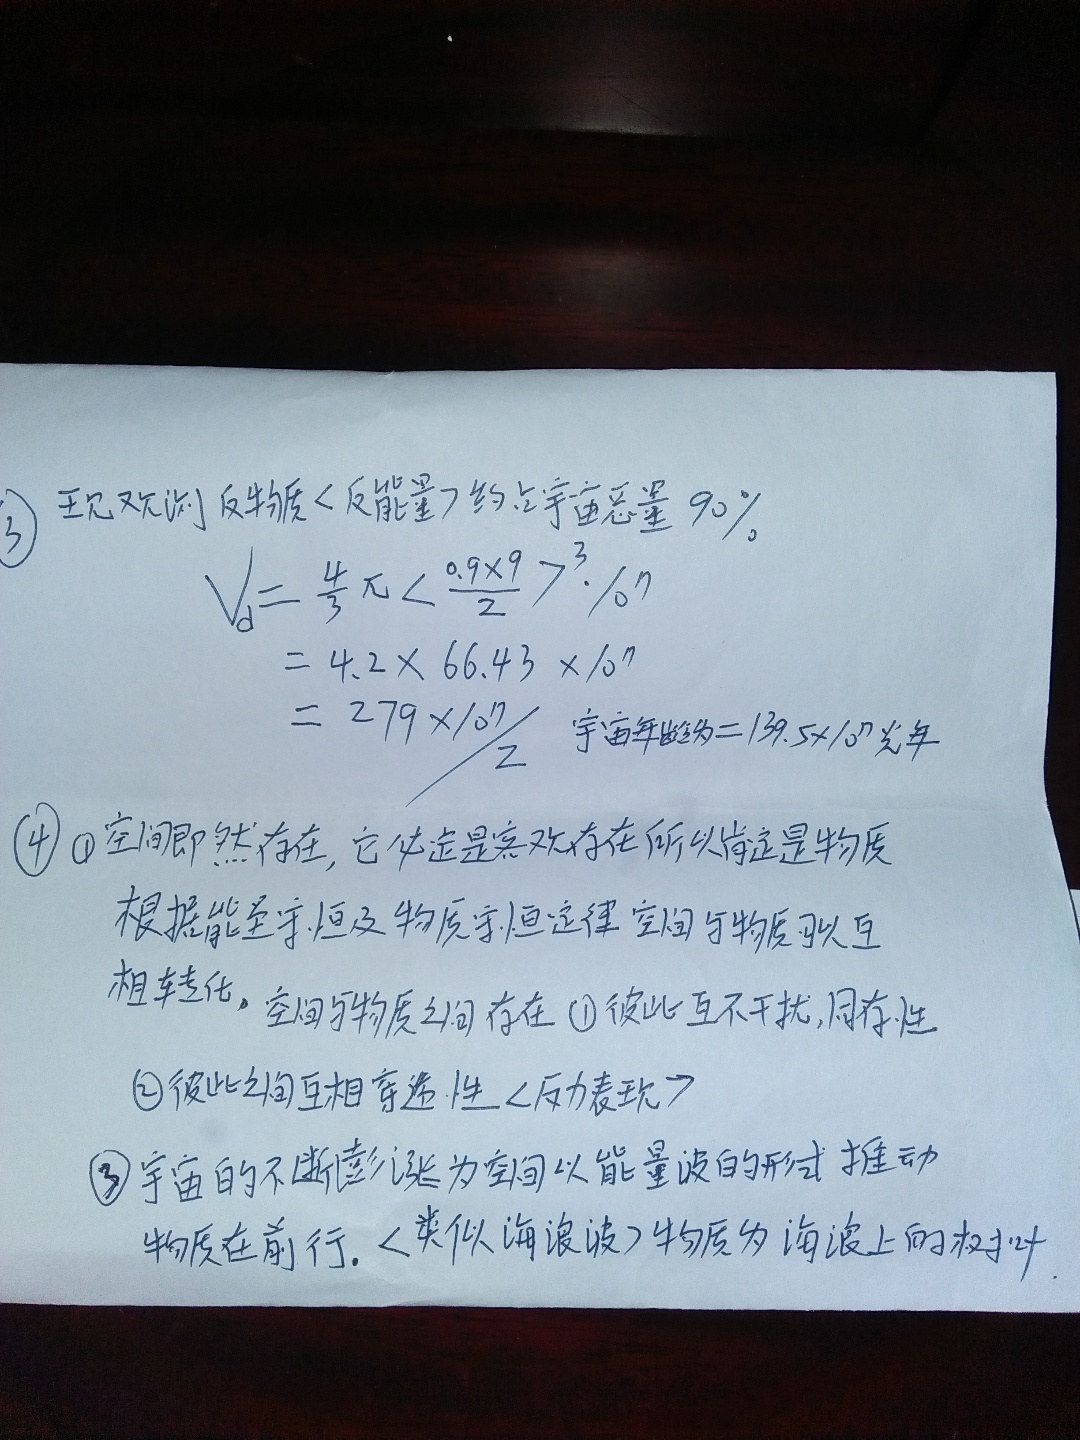 ③ 现观测反物质<反能量>约占宇宙总量90%
Vd = 4/3 π < 0.9×9/2 >³·10ⁿ
= 4.2 × 66.43 × 10ⁿ
= 279 ×10ⁿ/2 宇宙年龄约为=139.5×10ⁿ光年
④ ① 空间即然存在, 它必定是客观存在所以肯定是物质
根据能量守恒及物质守恒定律 空间与物质可以互
相转化。空间与物质之间存在 ①彼此互不干扰,同存性
②彼此之间互相穿透性<反力表现>
③ 宇宙的不断膨涨为空间以能量波的形式推动
物质在前行.<类似海浪波>物质为海浪上的